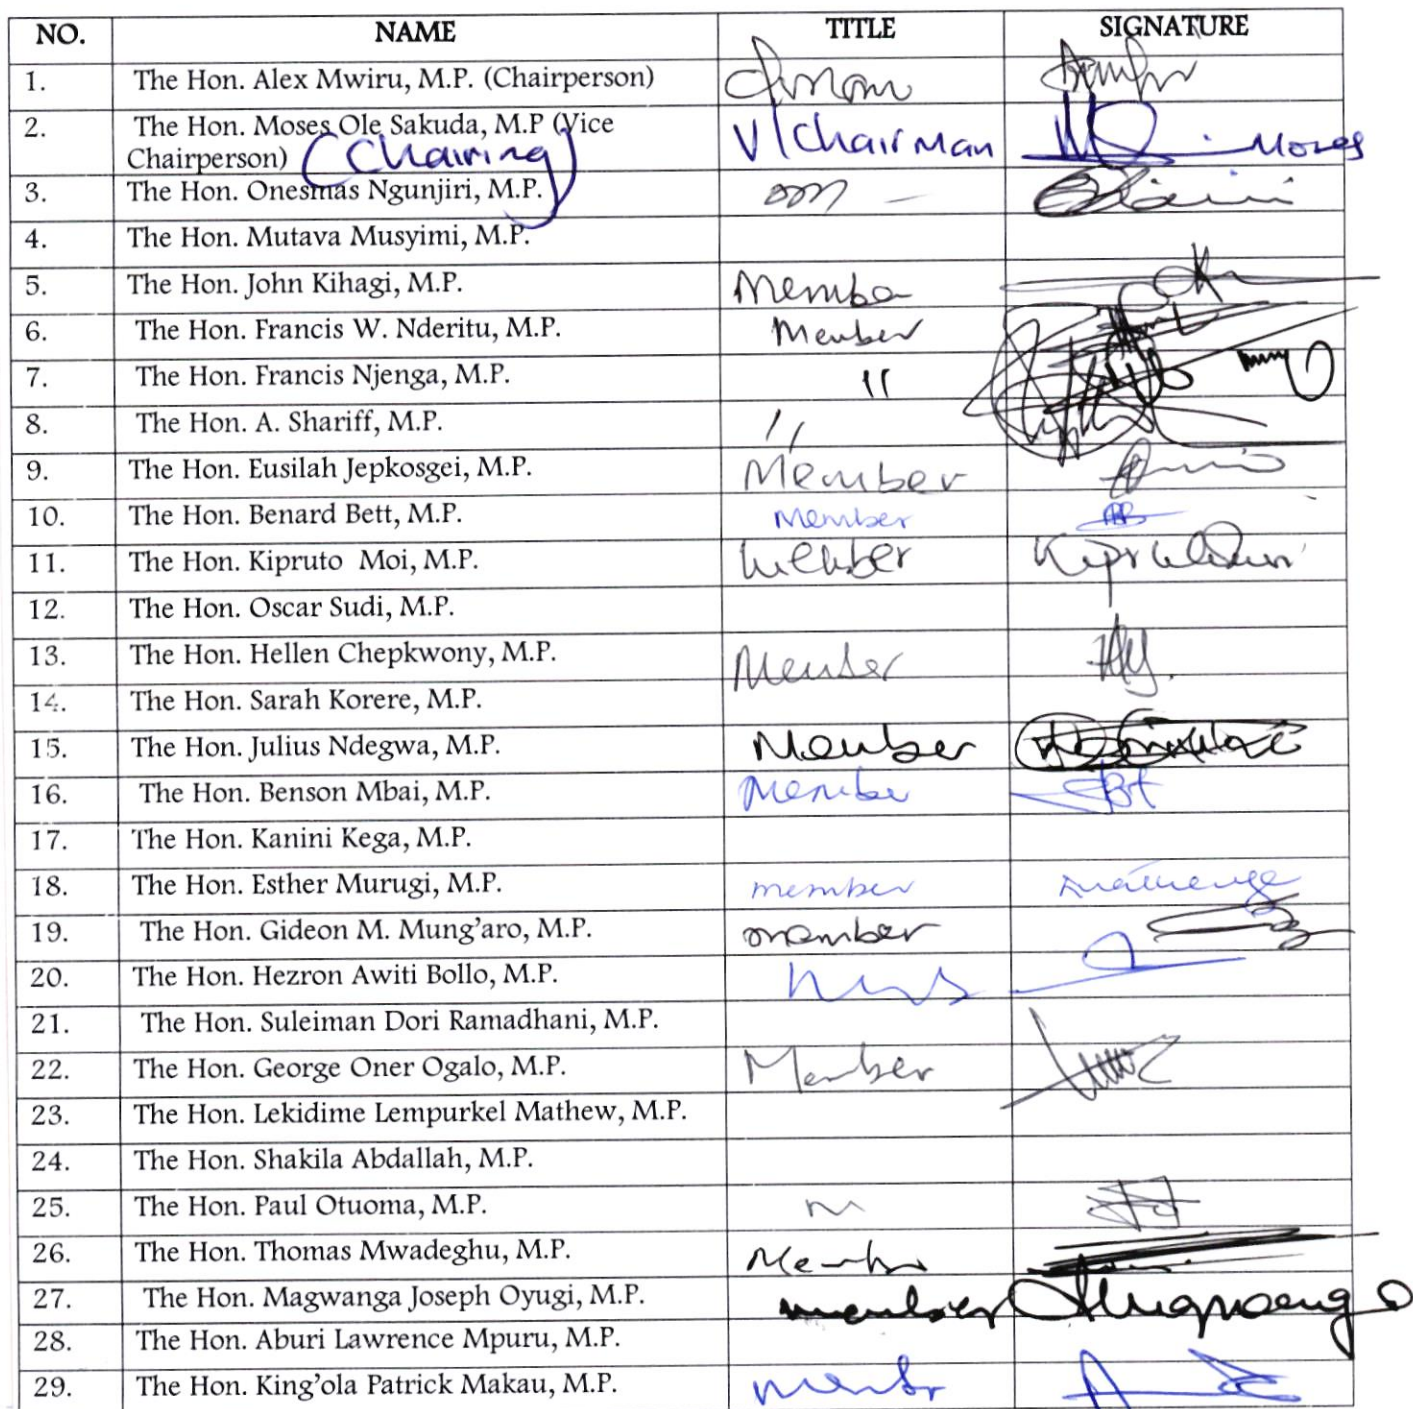 NO. NAME TITLE SIGNATURE
1. The Hon. Alex Mwiru, M.P. (Chairperson)
2. The Hon. Moses Ole Sakuda, M.P (Vice V/Chairman Moses
Chairperson) (Chairing)
3. The Hon. Onesmas Ngunjiri, M.P.
4. The Hon. Mutava Musyimi, M.P.
5. The Hon. John Kihagi, M.P. Member
6. The Hon. Francis W. Nderitu, M.P. Member
7. The Hon. Francis Njenga, M.P. "
8. The Hon. A. Shariff, M.P. "
9. The Hon. Eusilah Jepkosgei, M.P. Member
10. The Hon. Benard Bett, M.P. Member
11. The Hon. Kipruto Moi, M.P. Member
12. The Hon. Oscar Sudi, M.P.
13. The Hon. Hellen Chepkwony, M.P. Member
14. The Hon. Sarah Korere, M.P.
15. The Hon. Julius Ndegwa, M.P. Member
16. The Hon. Benson Mbai, M.P. Member
17. The Hon. Kanini Kega, M.P.
18. The Hon. Esther Murugi, M.P. member
19. The Hon. Gideon M. Mung'aro, M.P. member
20. The Hon. Hezron Awiti Bollo, M.P.
21. The Hon. Suleiman Dori Ramadhani, M.P.
22. The Hon. George Oner Ogalo, M.P. Member
23. The Hon. Lekidime Lempurkel Mathew, M.P.
24. The Hon. Shakila Abdallah, M.P.
25. The Hon. Paul Otuoma, M.P.
26. The Hon. Thomas Mwadeghu, M.P. Member
27. The Hon. Magwanga Joseph Oyugi, M.P. member
28. The Hon. Aburi Lawrence Mpuru, M.P.
29. The Hon. King'ola Patrick Makau, M.P. member